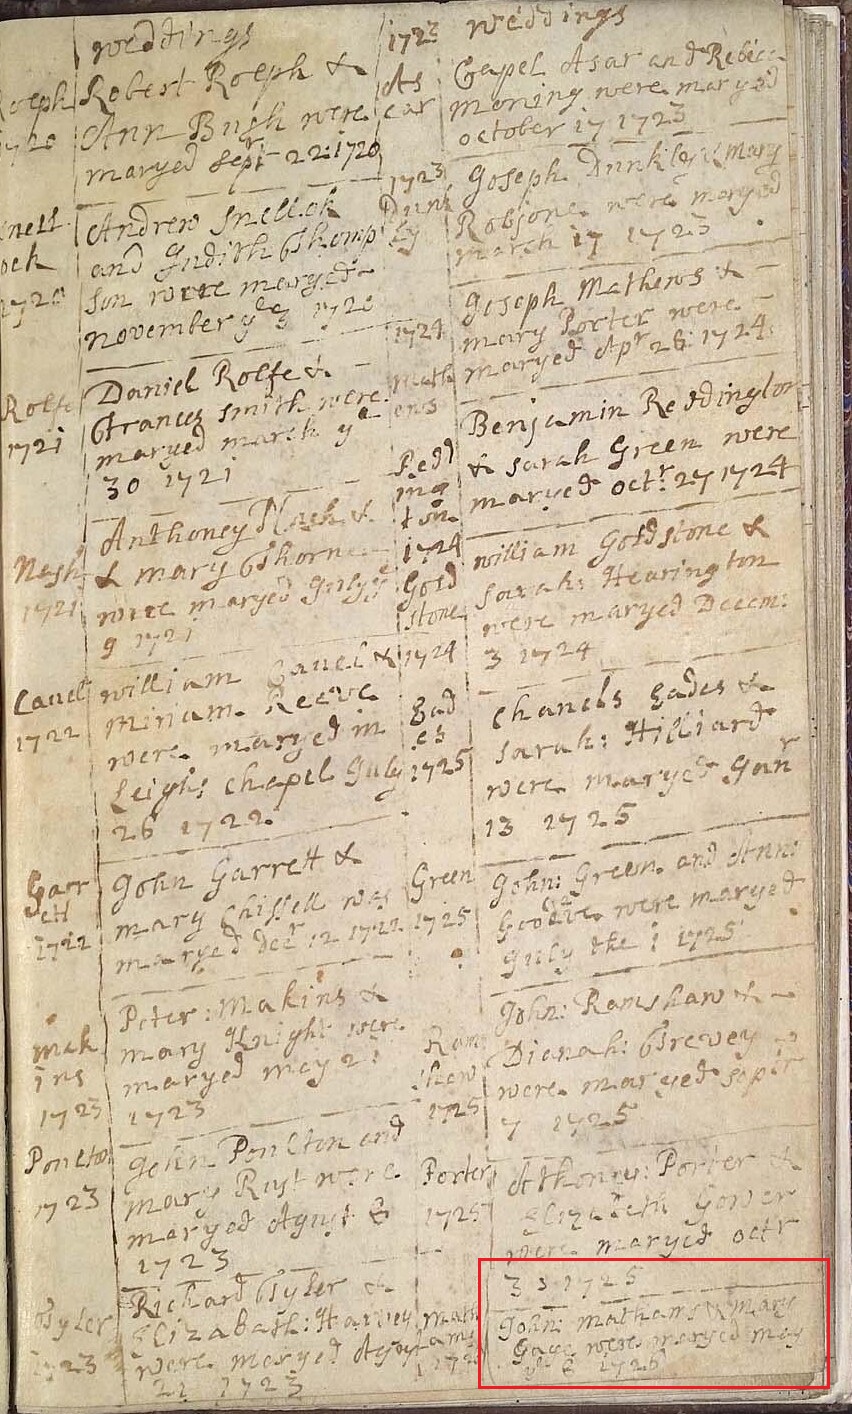 weddings
Robert Rolph &
Ann Bush were
maryed Sepr 22: 1720
Andrew Snellock
and Judith Thomp
son were maryed
november ye 3 1720
Rolfe
1721
Daniel Rolfe &
Frances Smith were
maryed march ye
30 1721
Nash
1721
Anthoney Nash &
& mary Thorne
were maryed July ye
9 1721
Cavell
1722
william Cavel &
miriam Reeve
were maryed in
Leighs chapel July
26 1722
Garr
ett
1722
John Garrett &
mary Chissell was
maryed Decr 12 1722
mak
ins
1723
Peter: Makins &
mary Knight were
maryed may 21
1723
Poulton
1723
John Poulton and
mary Rust were
maryed Agust 8
1723
Tyler
1723
Richard Tyler &
Elizabath: Harvey
were maryed Agust
21 1723
1723 weddings
As
car
Capel Asar and Rebeca
moning were maryed
october 17 1723
1723
Dunk
ly
Joseph Dunkley & mary
Robjone were maryed
march 17 1723
1724
math
ews
Joseph Mathews &
mary Porter were
maryed Apr 26: 1724
Redd
ing
ton
1724
Benjamin Reddington
& sarah Green were
maryed octr 27 1724
Gold
stone
1724
william Goldstone &
Sarah: Hearington
were maryed Decem:
3 1724
Ead
es
1725
Charels Eades &
Sarah: Hilliard
were maryed Janr
13 1725
Green
1725
John: Green and Ann:
were maryed
July the 1 1725
Ram
shaw
1725
John: Ramshaw &
Dianah: Trevey
were maryed Sepr
7 1725
Porter
1725
Athoney: Porter &
Elizabeth Gower
were maryed octr
33 1725
math
ams
172
John: mathams & mary
Gaye were maryed may
ye 6 1726